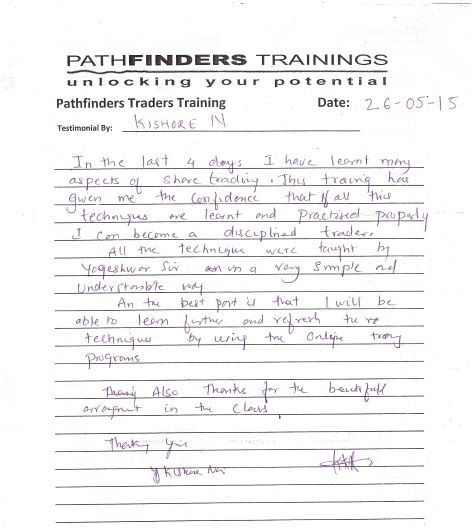 PATHFINDERS TRAININGS
unlocking your potential
Pathfinders Traders Training Date: 26-05-15
Testimonial By: KISHORE N
In the last 4 days I have learnt many
aspects of Share trading. This traing has
given me the confidence that if all this
techniques are learnt and Practised properly
I can become a disciplined trader.
All the technique were taught by
Yogeshwar Sir in a very Simple and
Understable way
An the best part is that I will be
able to learn further and refresh
techniques by using the Online
programs
Also Thanks for the beautiful
arrangment in the Class.
Thank you
Kishore